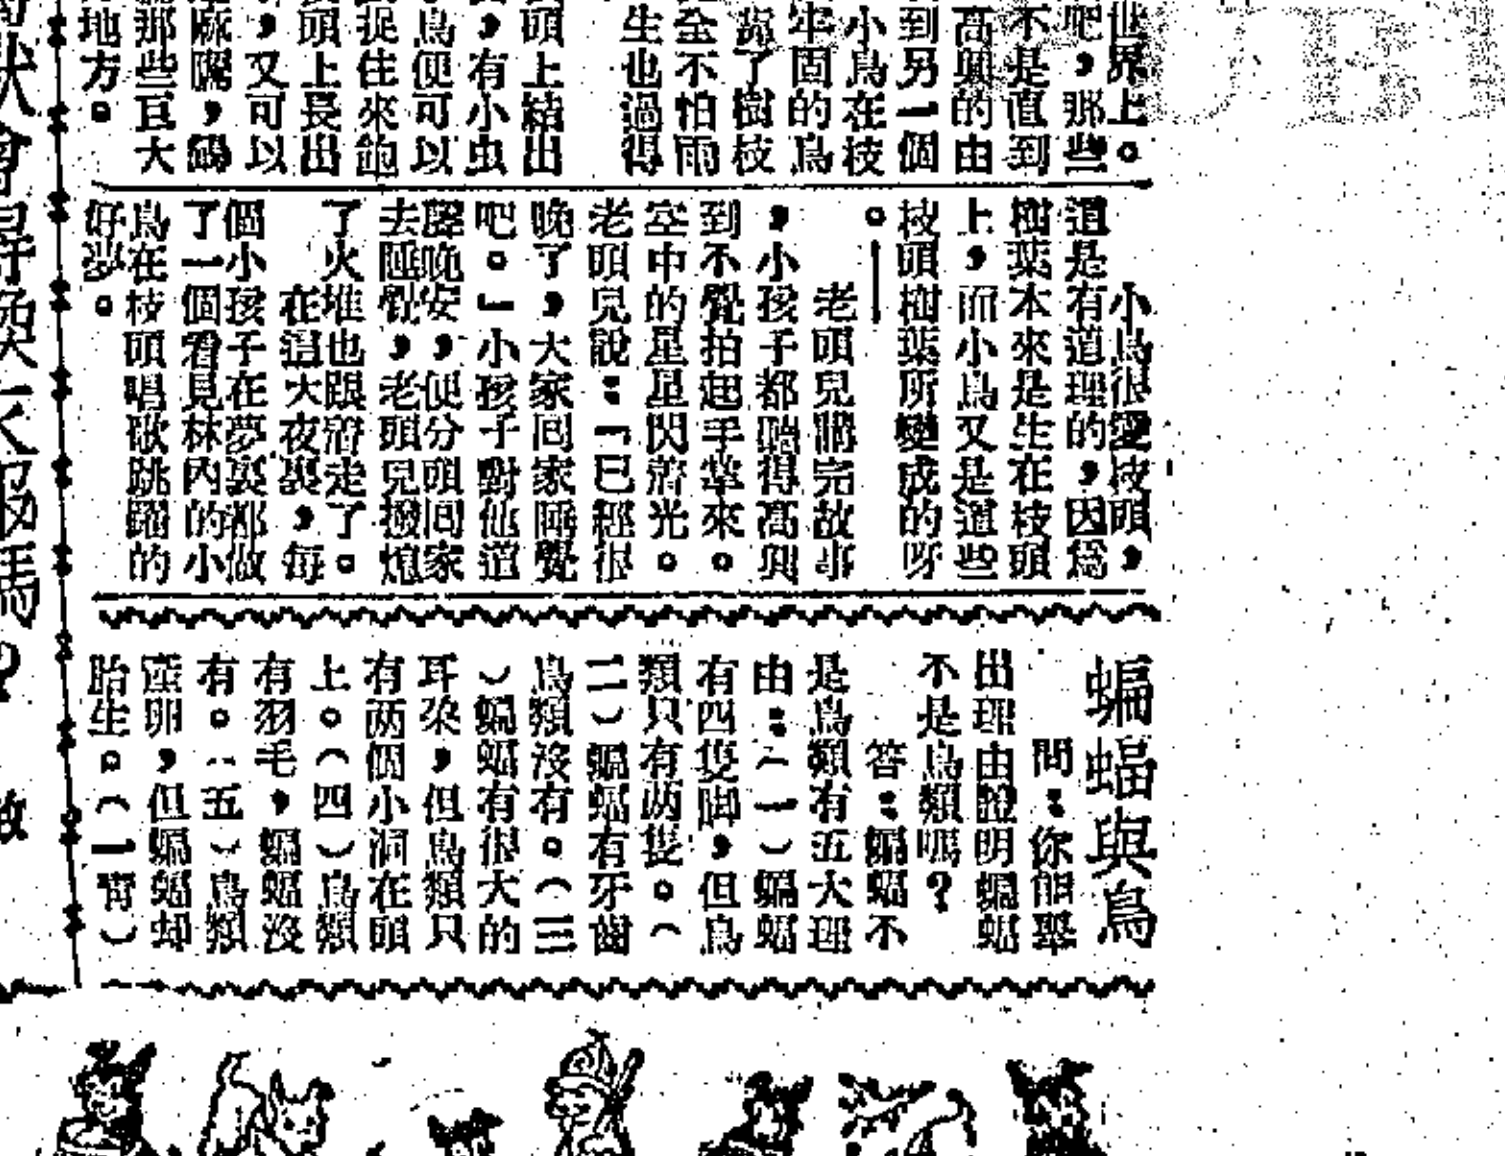 世界上。
吧，那些
不是直到
高興的由
到另一個
小鳥在枝
牢固的鳥
了樹枝
全不怕雨
生也過得
頭上結出
，有小虫
鳥便可以
捉住來飽
頭上長出
，又可以
那些盲大
地方。
小鳥很愛枝頭，
這是有道理的，因爲
樹葉本來是生在枝頭
上，而小鳥又是這些
枝頭樹葉所變成的呀
。——
老頭兒講完故事
，小孩子都聽得高興
到不覺拍起手掌來。
空中的星星閃着光。
老頭兒說：「已經很
晚了，大家回家睡覺
吧。」小孩子對他道
聲晚安，便分頭回家
去睡覺，老頭兒撥熄
了火堆也跟着走了。
在這大夜裏，每
個小孩子在夢裏都做
了一個看見林內的小
鳥在枝頭唱歌跳躍的
好夢。
蝙蝠與鳥
問：你能舉
出理由證明蝙蝠
不是鳥類嗎？
答：蝙蝠不
是鳥類有五大理
由：（一）蝙蝠
有四隻脚，但鳥
類只有两隻。（
二）蝙蝠有牙齒
鳥類沒有。（三
）蝙蝠有很大的
耳朶，但鳥類只
有两個小洞在頭
上。（四）鳥類
有羽毛，蝙蝠沒
有。（五）鳥類
產卵，但蝙蝠却
胎生。（一宵）